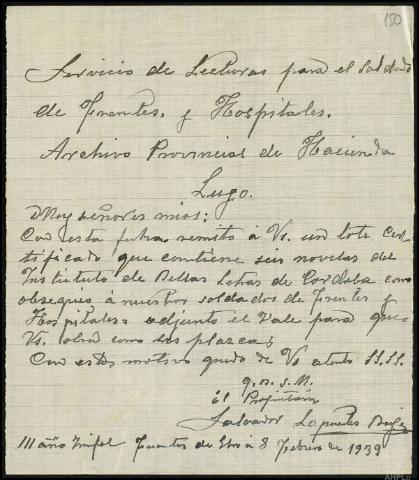 150
Servicio de Lecturas para el Soldado
de Frentes, y Hospitales.
Archivo Provincial de Hacienda
Lugo.
Muy señores mios;
Con esta fecha remito á Vs. un lote cer-
tificado que contiene seis novelas del
Instituto de Bellas Letras de Cordoba como
obsequio á nuestros soldados de Frentes y
Hospitales adjunto el Vale para que
Vs. obren como les plazca;
Con este motivo quedo de Vs atento SS.SS.
q. e. s. M.
El Propietario
Salvador
III año Triunfal Fuentes de Ebro á 8 Febrero de 1939
AHPLU